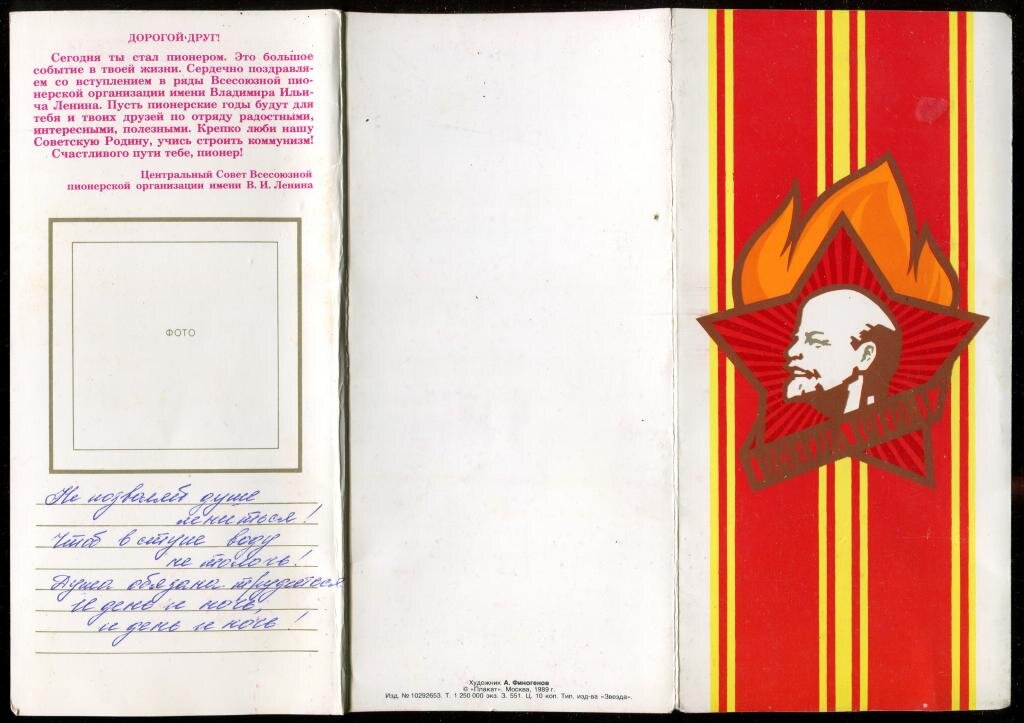 ДОРОГОЙ ДРУГ!
Сегодня ты стал пионером. Это большое
событие в твоей жизни. Сердечно поздравля-
ем со вступлением в ряды Всесоюзной пио-
нерской организации имени Владимира Ильи-
ча Ленина. Пусть пионерские годы будут для
тебя и твоих друзей по отряду радостными,
интересными, полезными. Крепко люби нашу
Советскую Родину, учись строить коммунизм!
Счастливого пути тебе, пионер!
Центральный Совет Всесоюзной
пионерской организации имени В. И. Ленина
ФОТО
Не позволяй душе
лениться!
Чтоб в ступе воду
не толочь!
Душа обязана трудиться
И день и ночь,
и день и ночь!
Художник А. Финогенов
© «Плакат», Москва, 1989 г.
Изд. № 10292653. Т. 1 250 000 экз. З. 551. Ц. 10 коп. Тип. изд-ва «Звезда».
ВСЕГДА ГОТОВ!